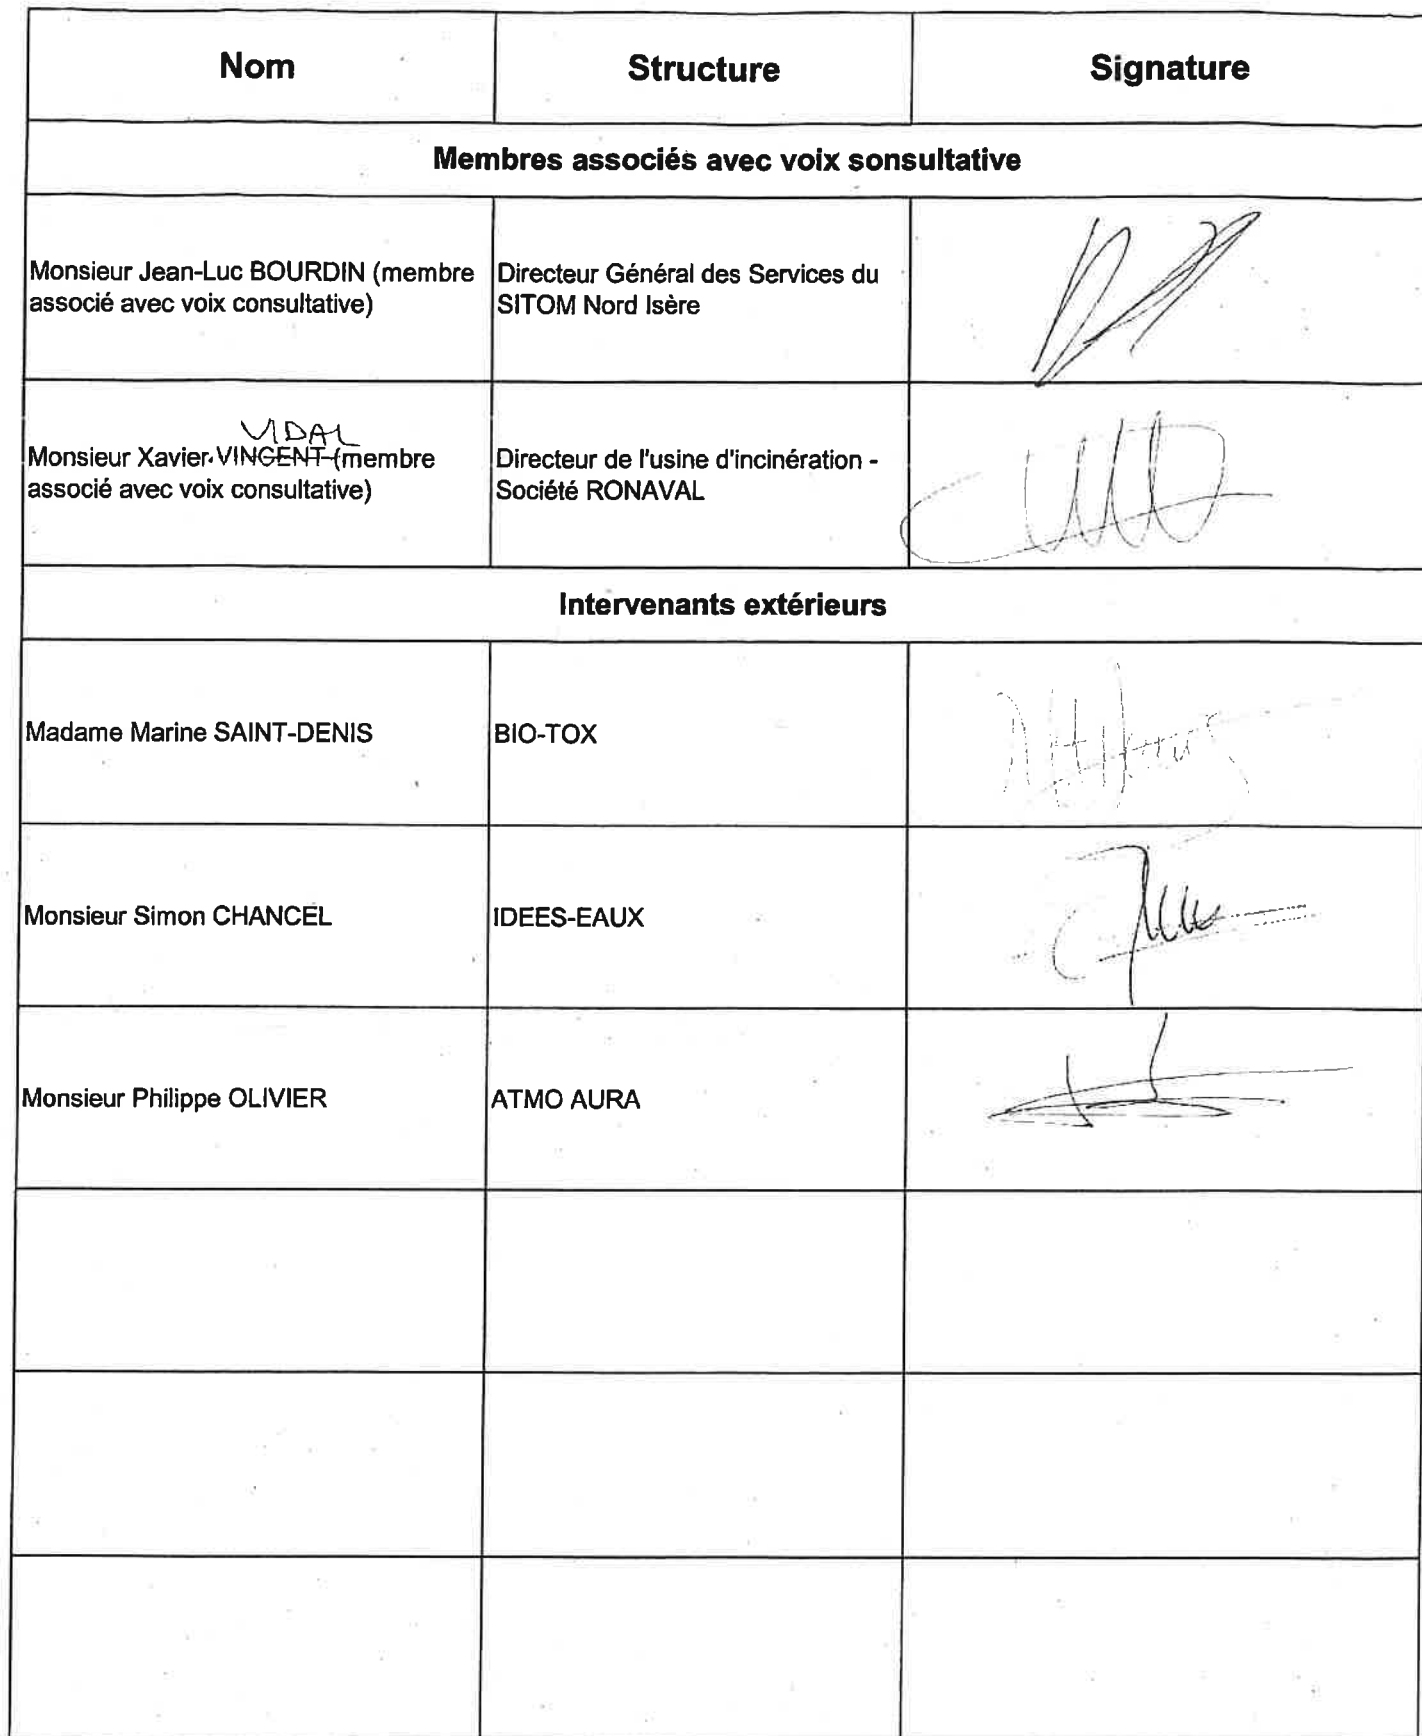 Nom
Structure
Signature
Membres associés avec voix sonsultative
Monsieur Jean-Luc BOURDIN (membre
associé avec voix consultative)
Directeur Général des Services du
SITOM Nord Isère
VIDAL
Monsieur Xavier VINCENT (membre
associé avec voix consultative)
Directeur de l'usine d'incinération -
Société RONAVAL
Intervenants extérieurs
Madame Marine SAINT-DENIS
BIO-TOX
Monsieur Simon CHANCEL
IDEES-EAUX
Monsieur Philippe OLIVIER
ATMO AURA